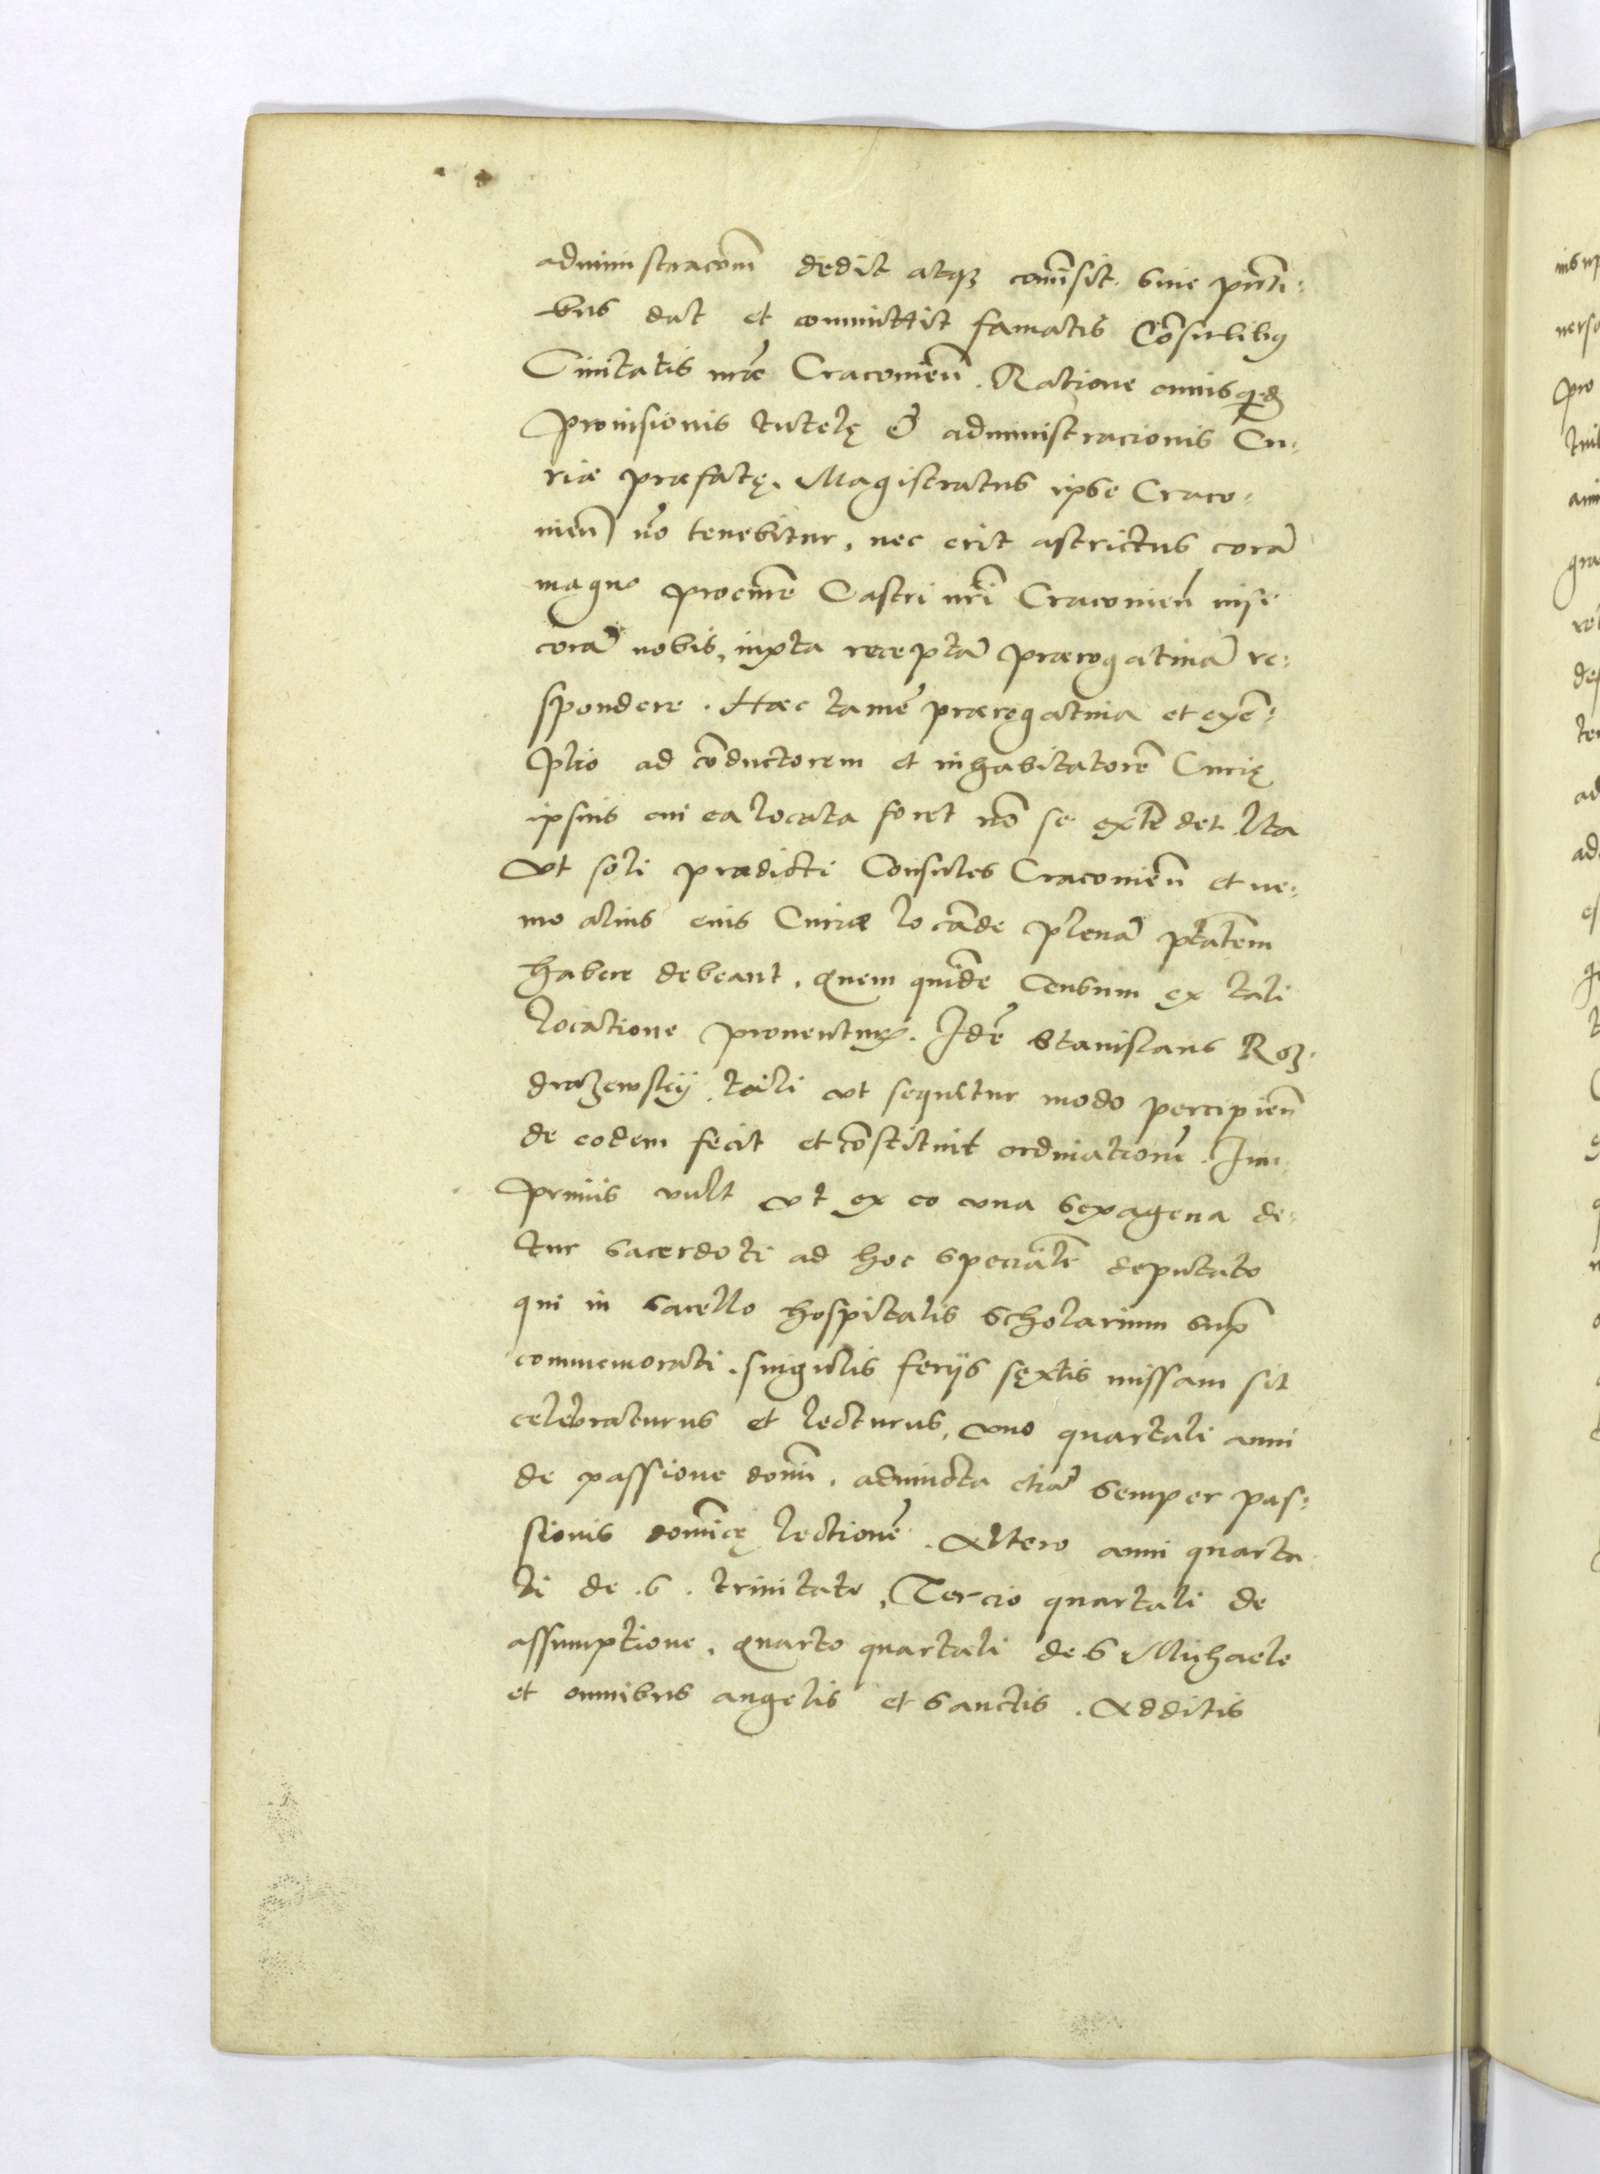 administracom̃ dedit atqȝ com̃isit. siue pñti-
bus dat et committit famatis Cõsulibus
Ciuitatis nr̃æ Cracouieñ. Ratione cuius
prouisionis tutelę & administracionis Cu-
riæ præfatę. Magistratus ipse Craco-
uieñ nõ tenebitur, nec erit astrictus corã
magno procur̃e Castri nr̃i Cracouieñ nisi
corã nobis, iuxta receptã prærogatiuã re-
spondere. Hæc tamẽ prærogatiua et exẽ-
ptio ad cõductorem et inhabitatorẽ Curię
ipsius cui ea locata foret nõ se extẽdet. Ita
vt soli prædicti Consules Cracouieñ et ne-
mo alius eius Curiæ locãde plenã ptãtem
habere debeant. Quem quidẽ Censum ex tali
locatione prouenturũ. Idẽ Stanislaus Roz-
drazewskij tali vt sequitur modo percipieñ
de eodem fecit et cõstituit ordinationẽ. Im-
primis vult vt ex eo vna sexagena de-
tur sacerdoti ad hoc specialit̃ deputato
qui in sacello hospitalis Scholarium sup̃
commemorati. singulis ferijs sextis missam sit
celebraturus et lecturus, vno quartali anni
de passione domĩ. adiuncta etiã semper pas-
sionis domĩcę lectionẽ. Altero anni quarta-
li de .S. trinitate, Tercio quartali de
assumptione. Quarto quartali de S Michaele
et omnibus angelis et Sanctis. Additis